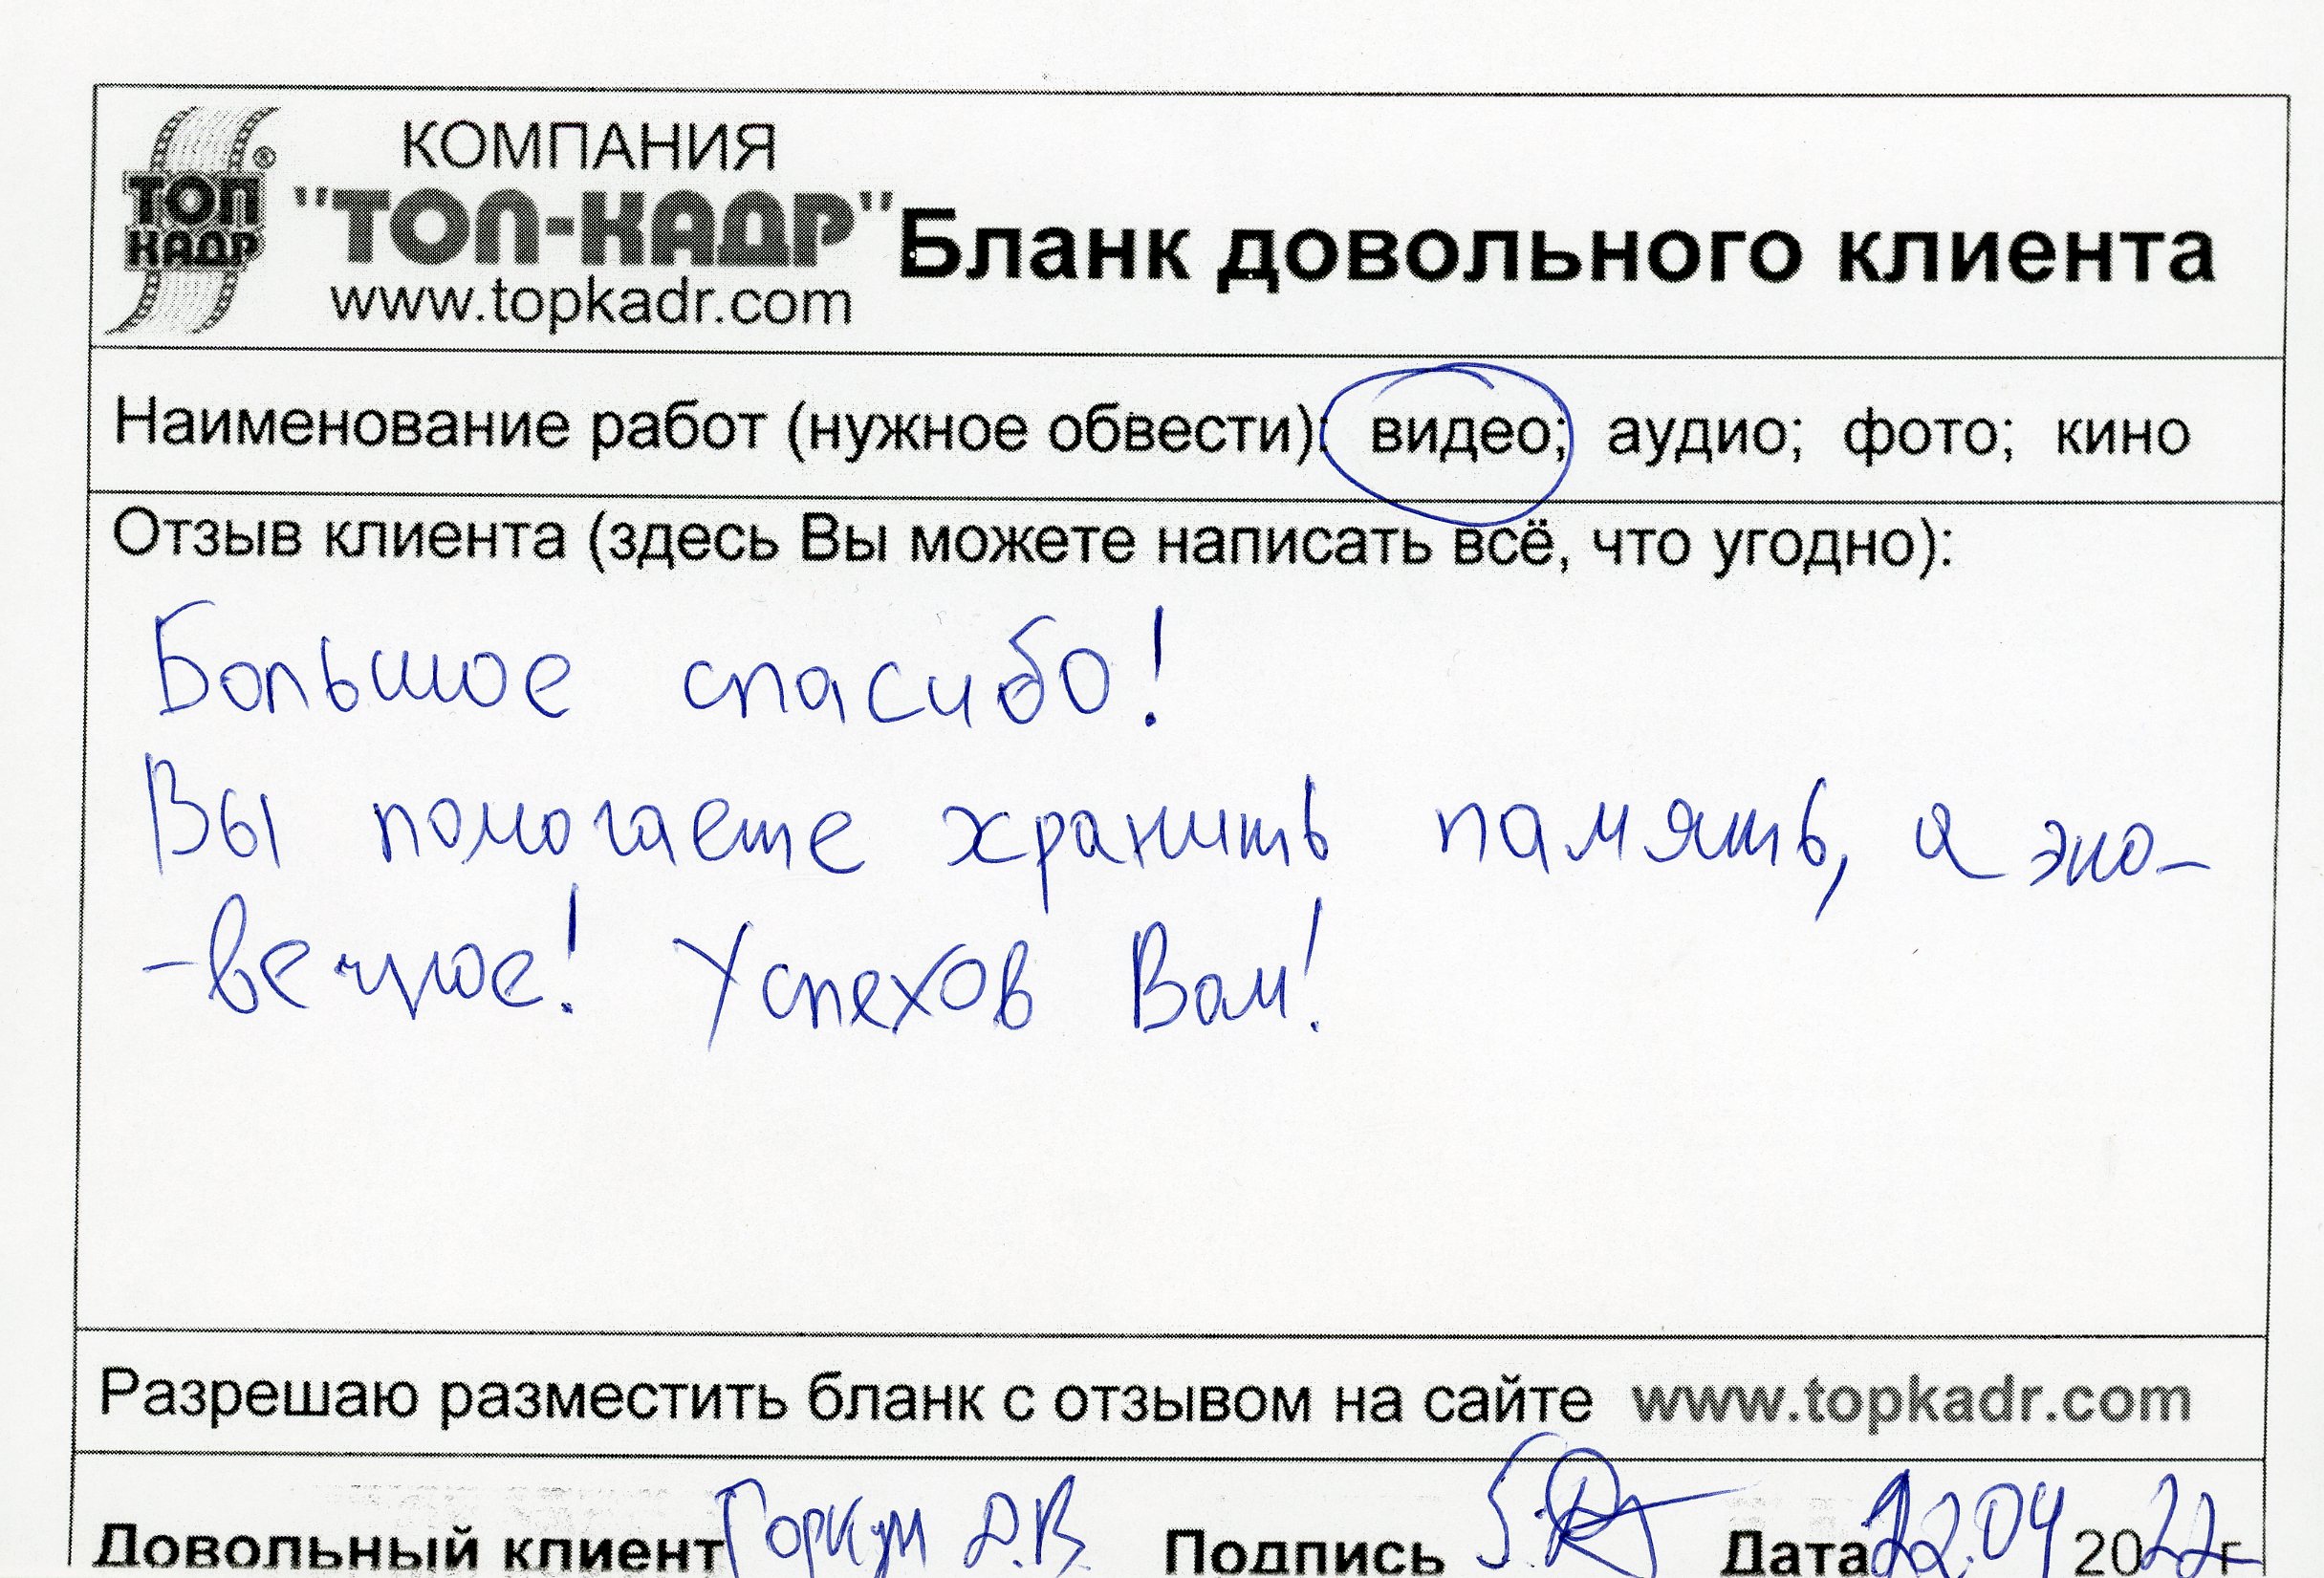 КОМПАНИЯ
ТОП КАДР ®
"ТОП-КАДР"
www.topkadr.com
Бланк довольного клиента
Наименование работ (нужное обвести): видео; аудио; фото; кино
Отзыв клиента (здесь Вы можете написать всё, что угодно):
Большое спасибо!
Вы помогаете хранить память, а это-
-вечное! Успехов Вам!
Разрешаю разместить бланк с отзывом на сайте www.topkadr.com
Довольный клиент Д.В. Подпись Дата 22.04 2022г